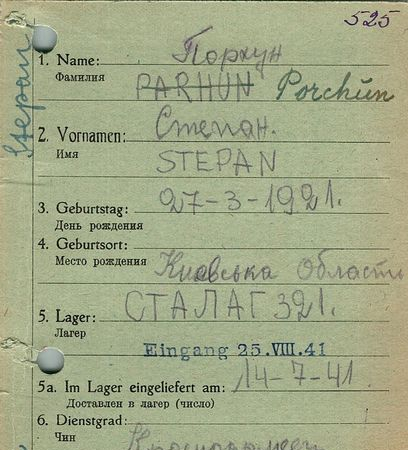 525
Stepan
1. Name: Порхун
Фамилия PARHUN Porchun
2. Vornamen: Степан.
Имя STEPAN
27-3-1921.
3. Geburtstag:
День рождения
4. Geburtsort:
Место рождения Києвська Область
СТАЛАГ 321.
5. Lager:
Лагер
Eingang 25.VIII.41
14-7-41.
5a. Im Lager eingeliefert am:
Доставлен в лагер (число)
6. Dienstgrad:
Чин